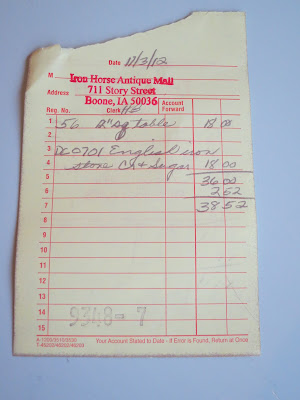 Date 11/3/12
M Iron Horse Antique Mall
Address 711 Story Street
Boone, IA 50036
Reg. No. Clerk Account Forward
1 56 12" sq table 18 00
2
3 DC0701 English iron
4 stone Cr + Sugar 18 00
5 36 00
6 2 52
7 38 52
8
9
10
11
12
13
14 9348-7
15
Your Account Stated to Date - If Error is Found, Return at Once